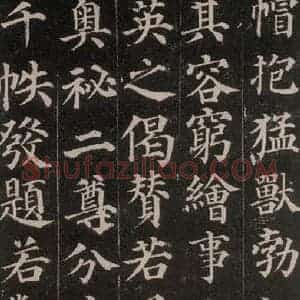 帽抱猛獸勃
其容窮繪事
英之偈賛若
奧秘二尊分
千帙發題若
Shufaziliao.com